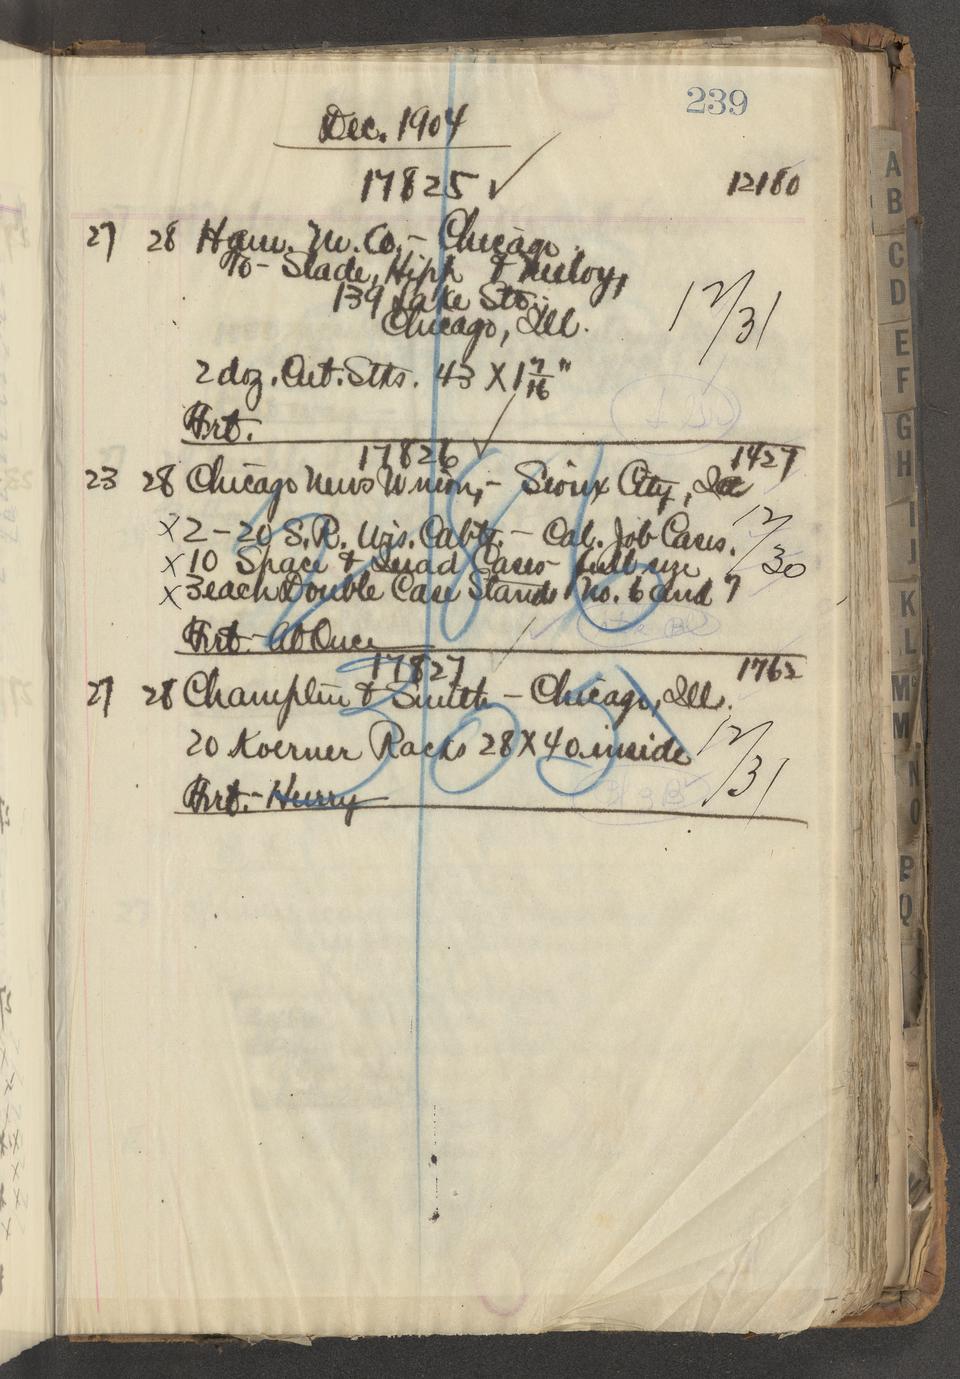 239
Dec. 1904
17825 ✓ 12180
27 28 Ham. M. Co. - Chicago.
To - Slade, Hipp & Meloy,
139 Lake St.
Chicago, Ill.
12/31
2 doz. Cut. Stks. 43 X 1 7/16"
Frt.
17826 ✓ 1427
23 28 Chicago News Union, - Sioux City, Ia
X 2 - 20 S.R. Wis. Cabts. - Cal. Job Cases.
12/30
X 10 Space & Quad Cases - full size
X 3 each Double Case Stands No. 6 and 7
Frt. - At Once
17827 1762
27 28 Champlin & Smith - Chicago, Ill.
20 Koerner Racks 28 X 40 inside
12/31
Frt. - Hurry
A
B
C
D
E
F
G
H
I
J
K
L
Mc
M
N
O
P
Q